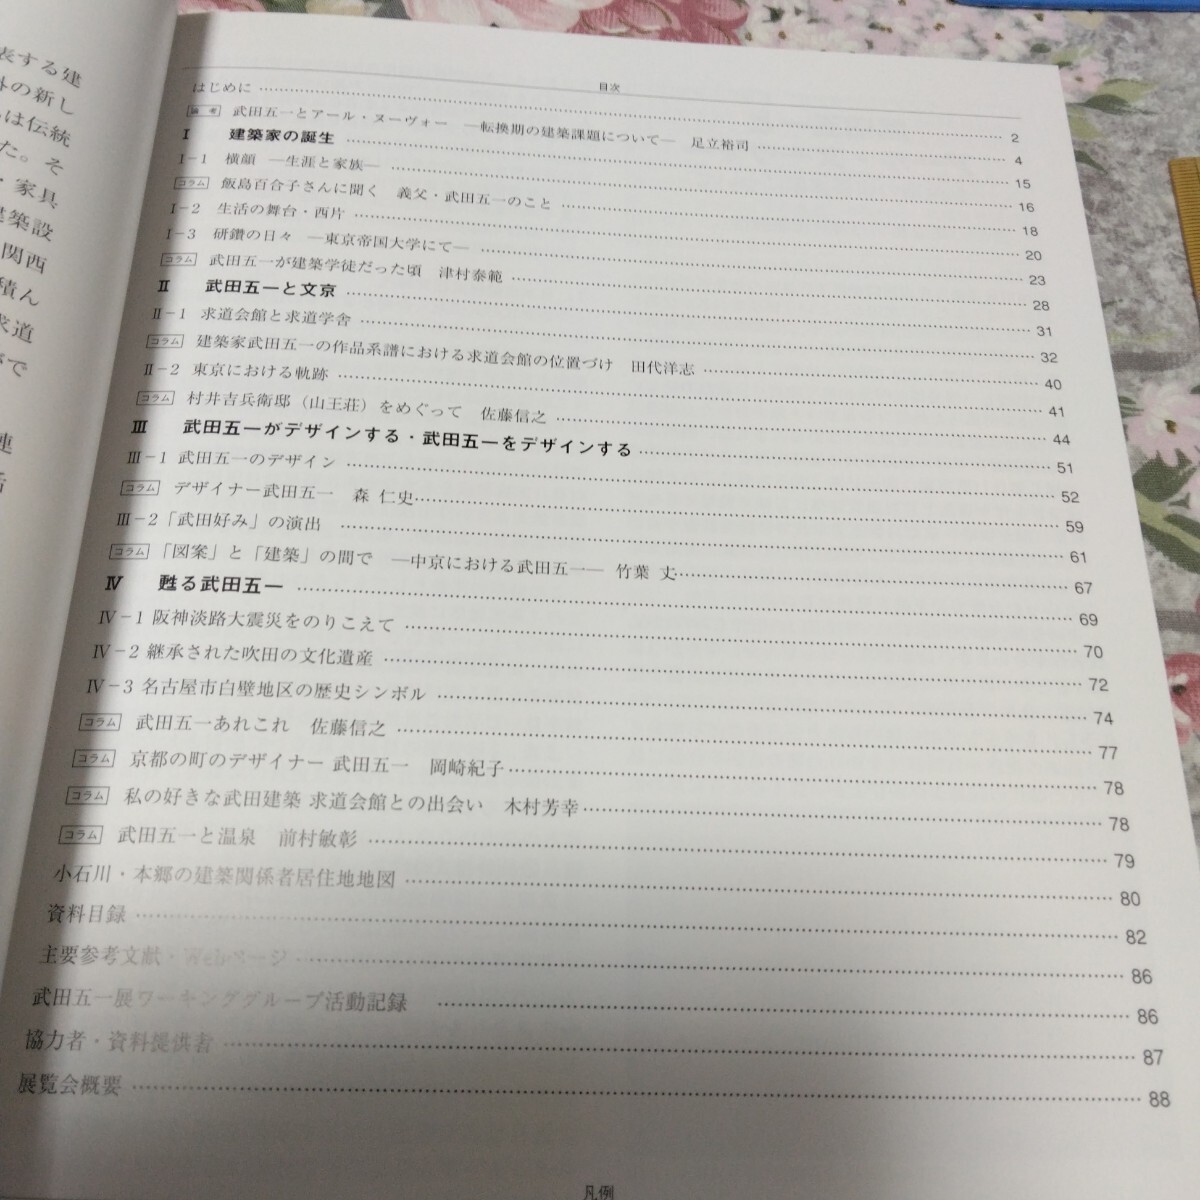 表する建
外の新し
は伝統
た。そ
・家具
建築設
関西
積ん
求道
がで
連
目次
はじめに 2
論考 武田五一とアール・ヌーヴォー ―転換期の建築課題について― 足立裕司 4
Ⅰ 建築家の誕生 15
Ⅰ-1 横顔 ―生涯と家族― 16
コラム 飯島百合子さんに聞く 義父・武田五一のこと 18
Ⅰ-2 生活の舞台・西片 20
Ⅰ-3 研鑽の日々 ―東京帝国大学にて― 23
コラム 武田五一が建築学徒だった頃 津村泰範 28
Ⅱ 武田五一と文京 31
Ⅱ-1 求道会館と求道学舎 32
コラム 建築家武田五一の作品系譜における求道会館の位置づけ 田代洋志 40
Ⅱ-2 東京における軌跡 41
コラム 村井吉兵衛邸（山王荘）をめぐって 佐藤信之 44
Ⅲ 武田五一がデザインする・武田五一をデザインする 51
Ⅲ-1 武田五一のデザイン 52
コラム デザイナー武田五一 森 仁史 59
Ⅲ-2「武田好み」の演出 61
コラム 「図案」と「建築」の間で ―中京における武田五一― 竹葉 丈 67
Ⅳ 甦る武田五一 69
Ⅳ-1 阪神淡路大震災をのりこえて 70
Ⅳ-2 継承された吹田の文化遺産 72
Ⅳ-3 名古屋市白壁地区の歴史シンボル 74
コラム 武田五一あれこれ 佐藤信之 77
コラム 京都の町のデザイナー 武田五一 岡崎紀子 78
コラム 私の好きな武田建築 求道会館との出会い 木村芳幸 78
コラム 武田五一と温泉 前村敏彰 79
小石川・本郷の建築関係者居住地地図 80
資料目録 82
主要参考文献・Webページ 86
武田五一展ワーキンググループ活動記録 86
協力者・資料提供者 87
展覧会概要 88
凡例